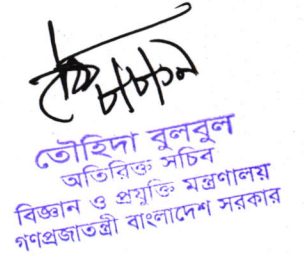 তৌহিদা বুলবুল
অতিরিক্ত সচিব
বিজ্ঞান ও প্রযুক্তি মন্ত্রণালয়
গণপ্রজাতন্ত্রী বাংলাদেশ সরকার